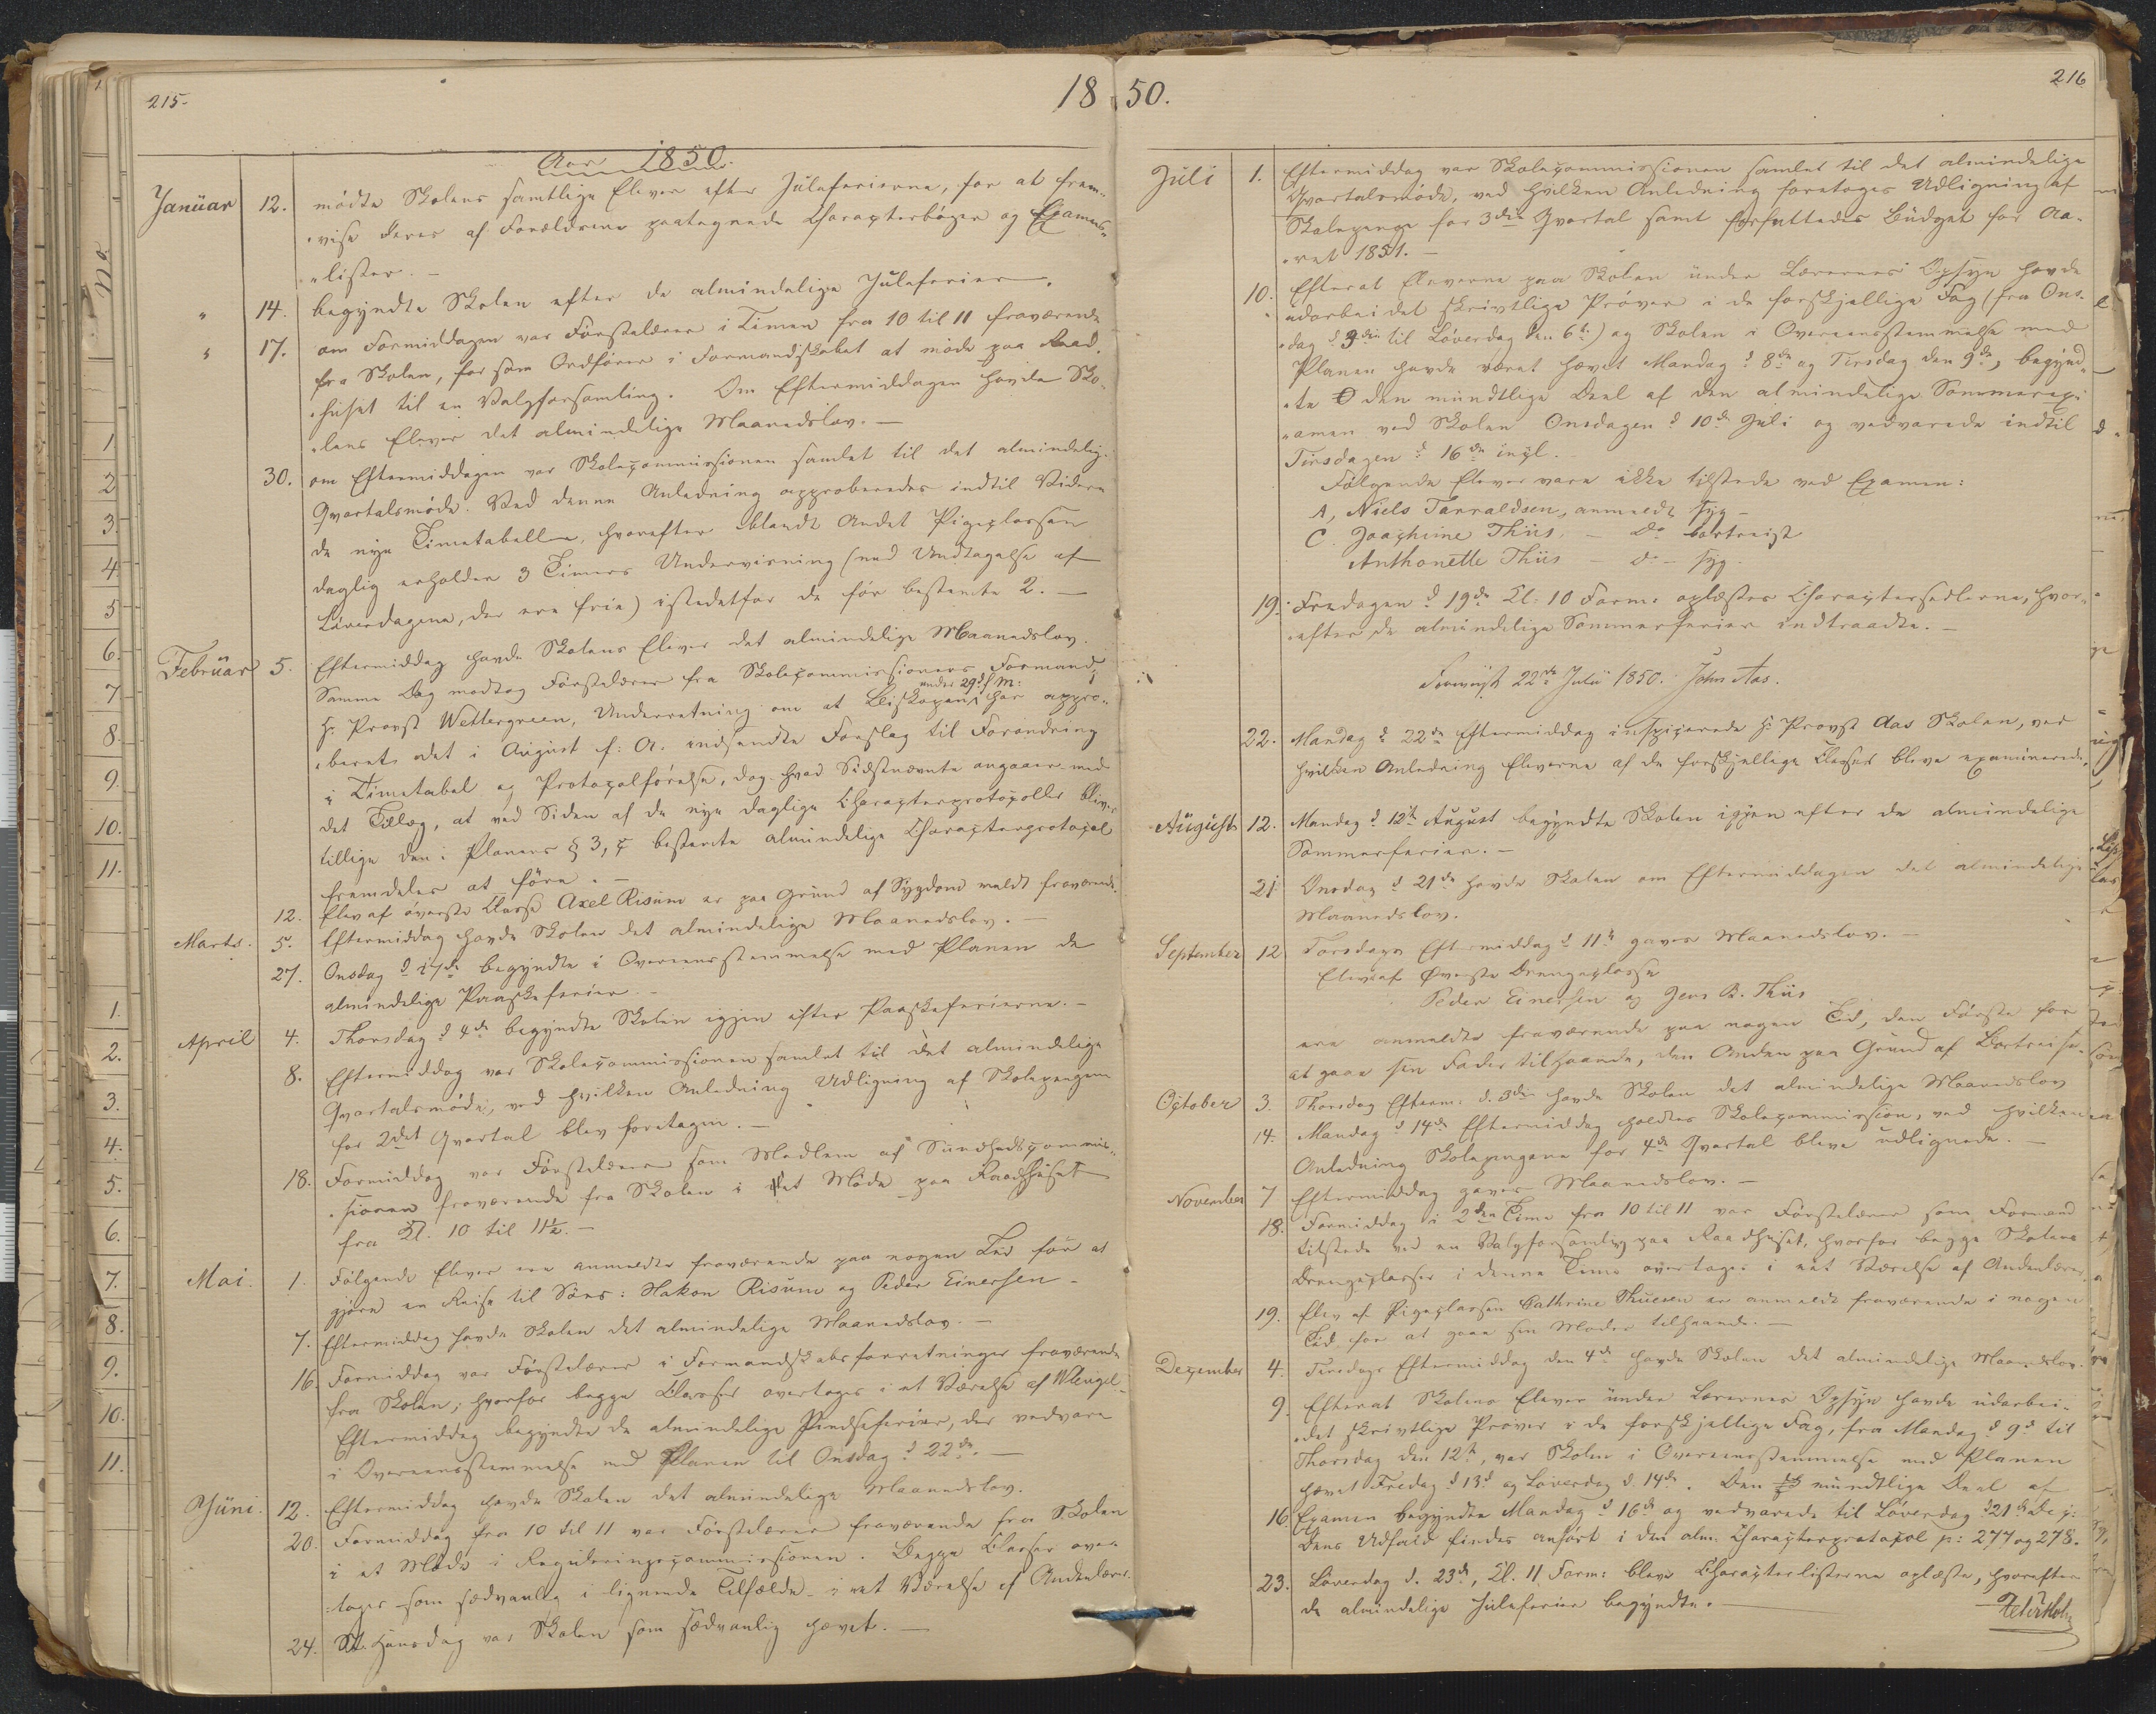 215.
1850.
Aar 1850.
Januar 12. mødte Skolens samtlige Elever efter Juleferierne, for at frem-
vise deres af Forældrene paategnede Characterbøger og Examens-
lister. –
" 14. begyndte Skolen efter de almindelige Juleferier.
" 17. om Formiddagen var Førstelærer i Timen fra 10 til 11 fraværende
fra Skolen, for som Ordfører i Formandskabet at møde paa Raad-
huset til en Valgforsamling. Om Eftermiddagen havde Sko-
lens Elever det almindelige Maanedslov. –
30. om Eftermiddagen var Skolecommissionen samlet til det almindelige
Qvartalsmøde. Ved denne Anledning approberedes indtil Videre
de nye Timetabeller, hvorefter blandt Andet Pigeclassen
daglig erholder 3 Timers Undervisning (med Undtagelse af
Løverdagene, der ere frie) istedetfor de før bestemte 2. –
Februar 5. Eftermiddag havde Skolens Elever det almindelige Maanedslov.
Samme Dag modtog Førstelærer fra Skolecommissionens Formand,
Hr. Provst Wettergreen, Underretning om at Biskopen under 29 f. M. har appro-
beret det i August f. A. indsendte Forslag til Forandring
i Timetabel og Protocolførelse, dog hvad Sidstnævnte angaaer med
det Tillæg, at ved Siden af de nye daglige Characterprotocoller bliver
tillige den i Planens § 3, c bestemte almindelige Characterprotocol
fremdeles at føre. –
12. Elev af øverste Classe Axel Risum er paa Grund af Sygdom meldt fraværende.
Marts. 5. Eftermiddag havde Skolen det almindelige Maanedslov. –
27. Onsdag d 27de begyndte i Overeensstemmelse med Planen de
almindelige Paaskeferier. –
April 4. Thorsdag d 4de begyndte Skolen igjen efter Paaskeferierne. –
8. Eftermiddag var Skolecommissionen samlet til det almindelige
Qvartalsmøde, ved hvilken Anledning Udligning af Skolepengene
for 2det Qvartal blev foretagen. –
18. Formiddag var Førstelærer som Medlem af Sundhedscommis-
sionen fraværende fra Skolen i et Møde paa Raadhuset
fra Kl. 10 til 11½. –
Mai. 1. Følgende Elever ere anmeldte fraværende paa nogen Tid for at
gjøre en Reise til Søes: Hakon Risum og Peder Einersen –
7. Eftermiddag havde Skolen det almindelige Maanedslov. –
16. Formiddag var Førstelærer i Formandskabsforretninger fraværende
fra Skolen; hvorfor begge Classer overtoges i et Værelse af
Eftermiddag begyndte de almindelige Pindseferier, der vedvare
i Overeensstemmelse med Planen til Onsdag d 22de. –
Juni. 12. Eftermiddag havde Skolen det almindelige Maanedslov.
20. Formiddag fra 10 til 11 var Førstelærer fraværende fra Skolen
i et Møde i Reguleringscommissionen. Begge Classer over-
toges som sædvanlig i lignende Tilfælde i eet Værelse af Andenlærer.
24. St. Hansdag var Skolen som sædvanlig hævet. –
216
Juli 1. Eftermiddag var Skolecommissionen samlet til det almindelige
Qvartalsmøde, ved hvilken Anledning foretoges Udligning af
Skolepenge for 3die Qvartal samt forfattedes Budget for Aa-
ret 1851. –
10. Efterat Eleverne paa Skolen under Lærernes Opsyn havde
udarbeidet skrivtlige Prøver i de forskjellige Fag (fra Ons-
dag d 3die til Løverdag den 6te) og Skolen i Overeensstemmelse med
Planen havde været hævet Mandag d 8de og Tirsdag den 9de, begynd-
te den mundtlige Deel af den almindelige Sommerex-
amen ved Skolen Onsdagen d 10de Juli og vedvarede indtil
Tirsdagen d 16de incl.
Følgende Elever vare ikke tilstede ved Examen:
A, Niels Tarraldsen, anmeldt syg –
C. Joachime Thiis – do bortreist
Anthonette Thiis – do – syg.
19. Fredagen d 19de Kl. 10 Form: oplæstes Charactersedlerne, hvor-
efter de almindelige Sommerferier indtraadte. –
Foreviist 22de Juli 1850. John Aas.
22. Mandag d 22de Eftermiddag inspicerede Hr. Provst Aas Skolen, ved
hvilken Anledning Eleverne af de forskjellige Classer bleve examinerede.
August 12. Mandag d 12te August begyndte Skolen igjen efter de almindelige
Sommerferier. –
21 Onsdag d 21de havde Skolen om Eftermiddagen det almindelige
Maanedslov.
September 12 Torsdags Eftermiddag d 11te gaves Maanedslov. –
Elev af Øverste Drengeclasse
Peder Einersen og Jens B. Thiis
ere anmeldte fraværende paa nogen Tid, den Første for
at gaae sin Fader tilhaande, den Anden paa Grund af Bortreise.
October 3. Thorsdag Efterm: d. 3die havde Skolen det almindelige Maanedslov
14. Mandag d 14de Eftermiddag holdtes Skolecommission, ved hvilken
Anledning Skolepengene for 4de Qvartal bleve udlignede. –
November 7 Eftermiddag gaves Maanedslov. –
18. Formiddag i 2den Time fra 10 til 11 var Førstelærer som Formand
tilstede ved en Valgforsamling paa Raadhuset, hvorfor begge Skolens
Drengeclasser i denne Time overtoges i eet Værelse af Andenlærer.
19. Elev af Pigeclassen Cathrine Thuesen er anmeldt fraværende i nogen
Tid for at gaae sin Moder tilhaande. –
December 4. Tirsdags Eftermiddag den 4de havde Skolen det almindelige Maanedslov.
9. Efterat Skolens Elever under Lærernes Opsyn havde udarbei-
det skrivtlige Prøver i de forskjellige Fag, fra Mandag d 9de til
Thorsdag den 12te, var Skolen i Overeensstemmelse med Planen
hævet Fredag d 13de og Løverdag d 14de. Den mundtlige Deel af
16. Examen begyndte Mandag d 16de og vedvarede til Løverdag d 21de Dec:
Dens Udfald findes anført i den alm. Characterprotocol p: 277 og 278.
23. Løverdag d. 23de, Kl. 11 Form: bleve Characterlisterne oplæste, hvorefter
de almindelige Juleferier begyndte. –
No
1
2
3.
4.
5
6.
7
8.
9.
10.
11.
1.
2.
3.
4.
5.
6.
7.
8.
9.
10.
11.